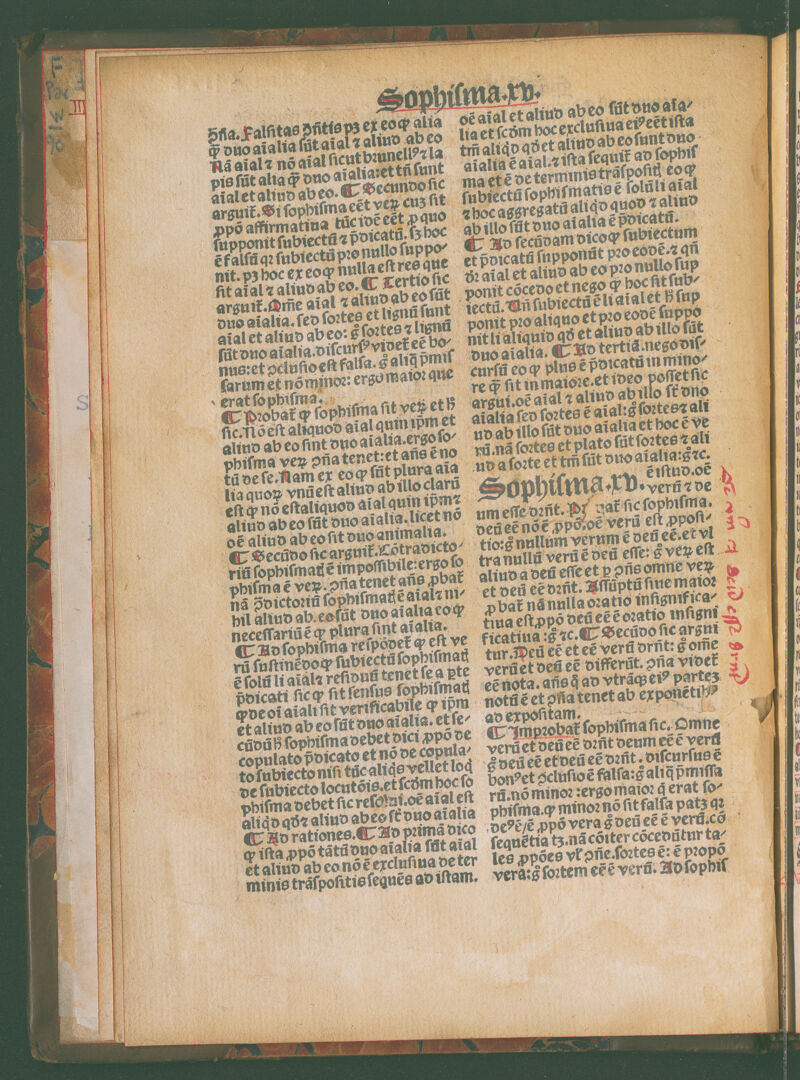 Sophiſma.xv.
ꝯña. Falſitas ꝯñtis pꝫ ex eo ꝙ alia
ꝙ̃ duo aīalia ſūt aīal ⁊ aliud ab eo
Nā aīal ⁊ nō aīal ſicut brunellꝰ ⁊ la
pis ſūt alia ꝙ̃ duo aīalia: et tn̄ ſunt
aīal et aliud ab eo. ¶ Secundo ſic
arguit̄. Si ſophiſma eēt veꝝ cuꝫ ſit
ꝓpō affirmatiua tūc idē eēt ꝓ quo
ſupponit ſubiectū ⁊ p̄dicatū. ſꝫ hoc
ē falſū qꝛ ſubiectū pro nullo ſuppo⸗
nit. pꝫ hoc ex eo ꝙ nulla eſt res que
ſit aīal ⁊ aliud ab eo. ¶ Tertio ſic
arguit̄. Om̄e aīal ⁊ aliud ab eo ſūt
duo aīalia. ſed ſortes et lignū ſunt
aīal et aliud ab eo: g̊ ſortes ⁊ lignū
ſūt duo aīalia. diſcurſꝰ videt̄ eē bo⸗
nus: et ꝯcluſio eſt falſa. g̊ aliq̄ p̄miſ
ſarum et nō minor: ergo maior que
erat ſophiſma.
¶ Probat̄ ꝙ ſophiſma ſit veꝝ et ꝧ
ſic. Nō eſt aliquod aīal quin ip̄m et
aliud ab eo ſint duo aīalia. ergo ſo⸗
phiſma veꝝ ꝯña tenet: et añs ē no
tū de ſe. Nam ex eo ꝙ ſūt plura aīa
lia quoꝝ vnū eſt aliud ab illo clarū
eſt ꝙ nō eſt aliquod aīal quin ip̄m ⁊
aliud ab eo ſūt duo aīalia. licet nō
oē aīal et aliud ab eo ſit duo animalia.
¶ Secūdo ſic arguit̄. Cōtradicto⸗
riū ſophiſmatꝭ ē impoſſibile: ergo ſo
phiſma ē veꝝ. ꝯña tenet añs ꝓbat̄
nā ꝯ̄dictoriū ſophiſmatꝭ ē aīal ⁊ ni⸗
hil aliud ab. eo ſūt duo aīalia eo ꝙ
neceſſariū ē ꝙ plura ſint aīalia.
¶ Ad ſophiſma reſpōdet̄ ꝙ eſt ve
rū ſuſtinēdo ꝙ ſubiectū ſophiſmatꝭ
ē ſolū li aīal ⁊ reſiduū tenet ſe a ꝑte
p̄dicati ſic ꝙ ſit ſenſus ſophiſmatꝭ
ꝙ de oī aīali ſit verificabile ꝙ ip̄m
et aliud ab eo ſūt duo aīalia. et ſe⸗
cūdū ꝧ ſophiſma debet dici ꝓpō de
copulato p̄dicato et nō de copula⸗
to ſubiecto niſi tūc aliqͥs vellet loq̄
de ſubiecto locutōis. et ſcd̄m hoc ſo
phiſma debet ſic reſolui. oē aīal eſt
aliqͥd qd̄ ⁊ aliud ab eo ſt̄ duo aīalia
¶ Ad rationes. ¶ Ad primā dico
ꝙ iſta ꝓpō tātū duo aīalia ſūt aīal
et aliud ab eo nō ē excluſiua de ter
minis trāſpoſitis ſequēs ad iſtam.
oē aīal et aliud ab eo ſūt duo aīa⸗
lia et ſcd̄m hoc excluſiua eiꝰ eēt iſta
tm̄ aliqͥd qd̄ et aliud ab eo ſunt duo
aīalia ē aīal. ⁊ iſta ſequit̄ ad ſophiſ
ma et ē de terminis trāſpoſitꝭ eo ꝙ
ſubiectū ſophiſmatis ē ſolū li aīal
⁊ hoc aggregatū aliqͥd quod ⁊ aliud
ab illo ſūt duo aīalia ē p̄dicatū.
¶ Ad ſecūdam dico ꝙ ſubiectum
et p̄dicatū ſupponūt pro eodē. ⁊ qn̄
d̄r aīal et aliud ab eo pro nullo ſup
ponit cōcedo et nego ꝙ hoc ſit ſub⸗
iectū. Un̄ ſubiectū ē li aīal et ꝧ ſup
ponit pro aliquo et pro eodē ſuppo
nit li aliquid qd̄ et aliud ab illo ſūt
duo aīalia. ¶ Ad tertiā. nego diſ⸗
curſū eo ꝙ plus ē p̄dicatū in mino⸗
re ꝙ̄ ſit in maiore. et ideo poſſet ſic
argui. oē aīal ⁊ aliud ab illo ſt̄ duo
aīalia ſed ſortes ē aīal: g̊ ſortes ⁊ ali
ud ab illo ſūt duo aīalia et hoc ē ve
rū. nā ſortes et plato ſūt ſortes ⁊ ali
ud a ſorte et tm̄ ſūt duo aīalia: g̊ ⁊c.
Sophiſma.xv. ē iſtud. oē
verū ⁊ de
um eſſe drn̄t. Probat̄ ſic ſophiſma.
deū eē nō ē ꝓpō. oē verū eſt ꝓpoſi⸗
tio: g̊ nullum verum ē deū eē. et vl
tra nullū verū ē deū eſſe: g̊ veꝝ eſt
aliud a deū eſſe et ꝑ ꝯñs omne veꝝ
et deū eē drn̄t. Aſſūptū ſiue maior
ꝓbat̄ nā nulla oratio inſignifica⸗
tiua eſt ꝓpō deū eē ē oratio inſigni
ficatiua: g̊ ⁊c. ¶ Secūdo ſic argui
tur. Deū eē et eē verū drn̄t: g̊ om̄e
verū et deū eē differūt. ꝯña videt̄
eē nota. añs q̄ ad vtrāqꝫ eiꝰ parteꝫ
notū ē et ꝯña tenet ab exponētibꝰ
ad expoſitam.
¶ Improbat̄ ſophiſma ſic. Omne
verū et deū eē drn̄t deum eē ē verū
g̊ deū eē et deū eē drn̄t. diſcurſus ē
bonꝰ et ꝯcluſio ē falſa: g̊ aliq̄ p̄miſſa
rū. nō minor: ergo maior q̄ erat ſo⸗
phiſma. ꝙ minor nō ſit falſa patꝫ qꝛ
deꝰ ē/ē ꝓpō vera g̊ deū eē ē verū. cō
ſequētia tꝫ. nā cōiter cōcedūtur ta⸗
les ꝓpōes vt̄ ꝯñe. ſortes ē: ē propō
vera: g̊ ſortem eē ē verū. Ad ſophiſ